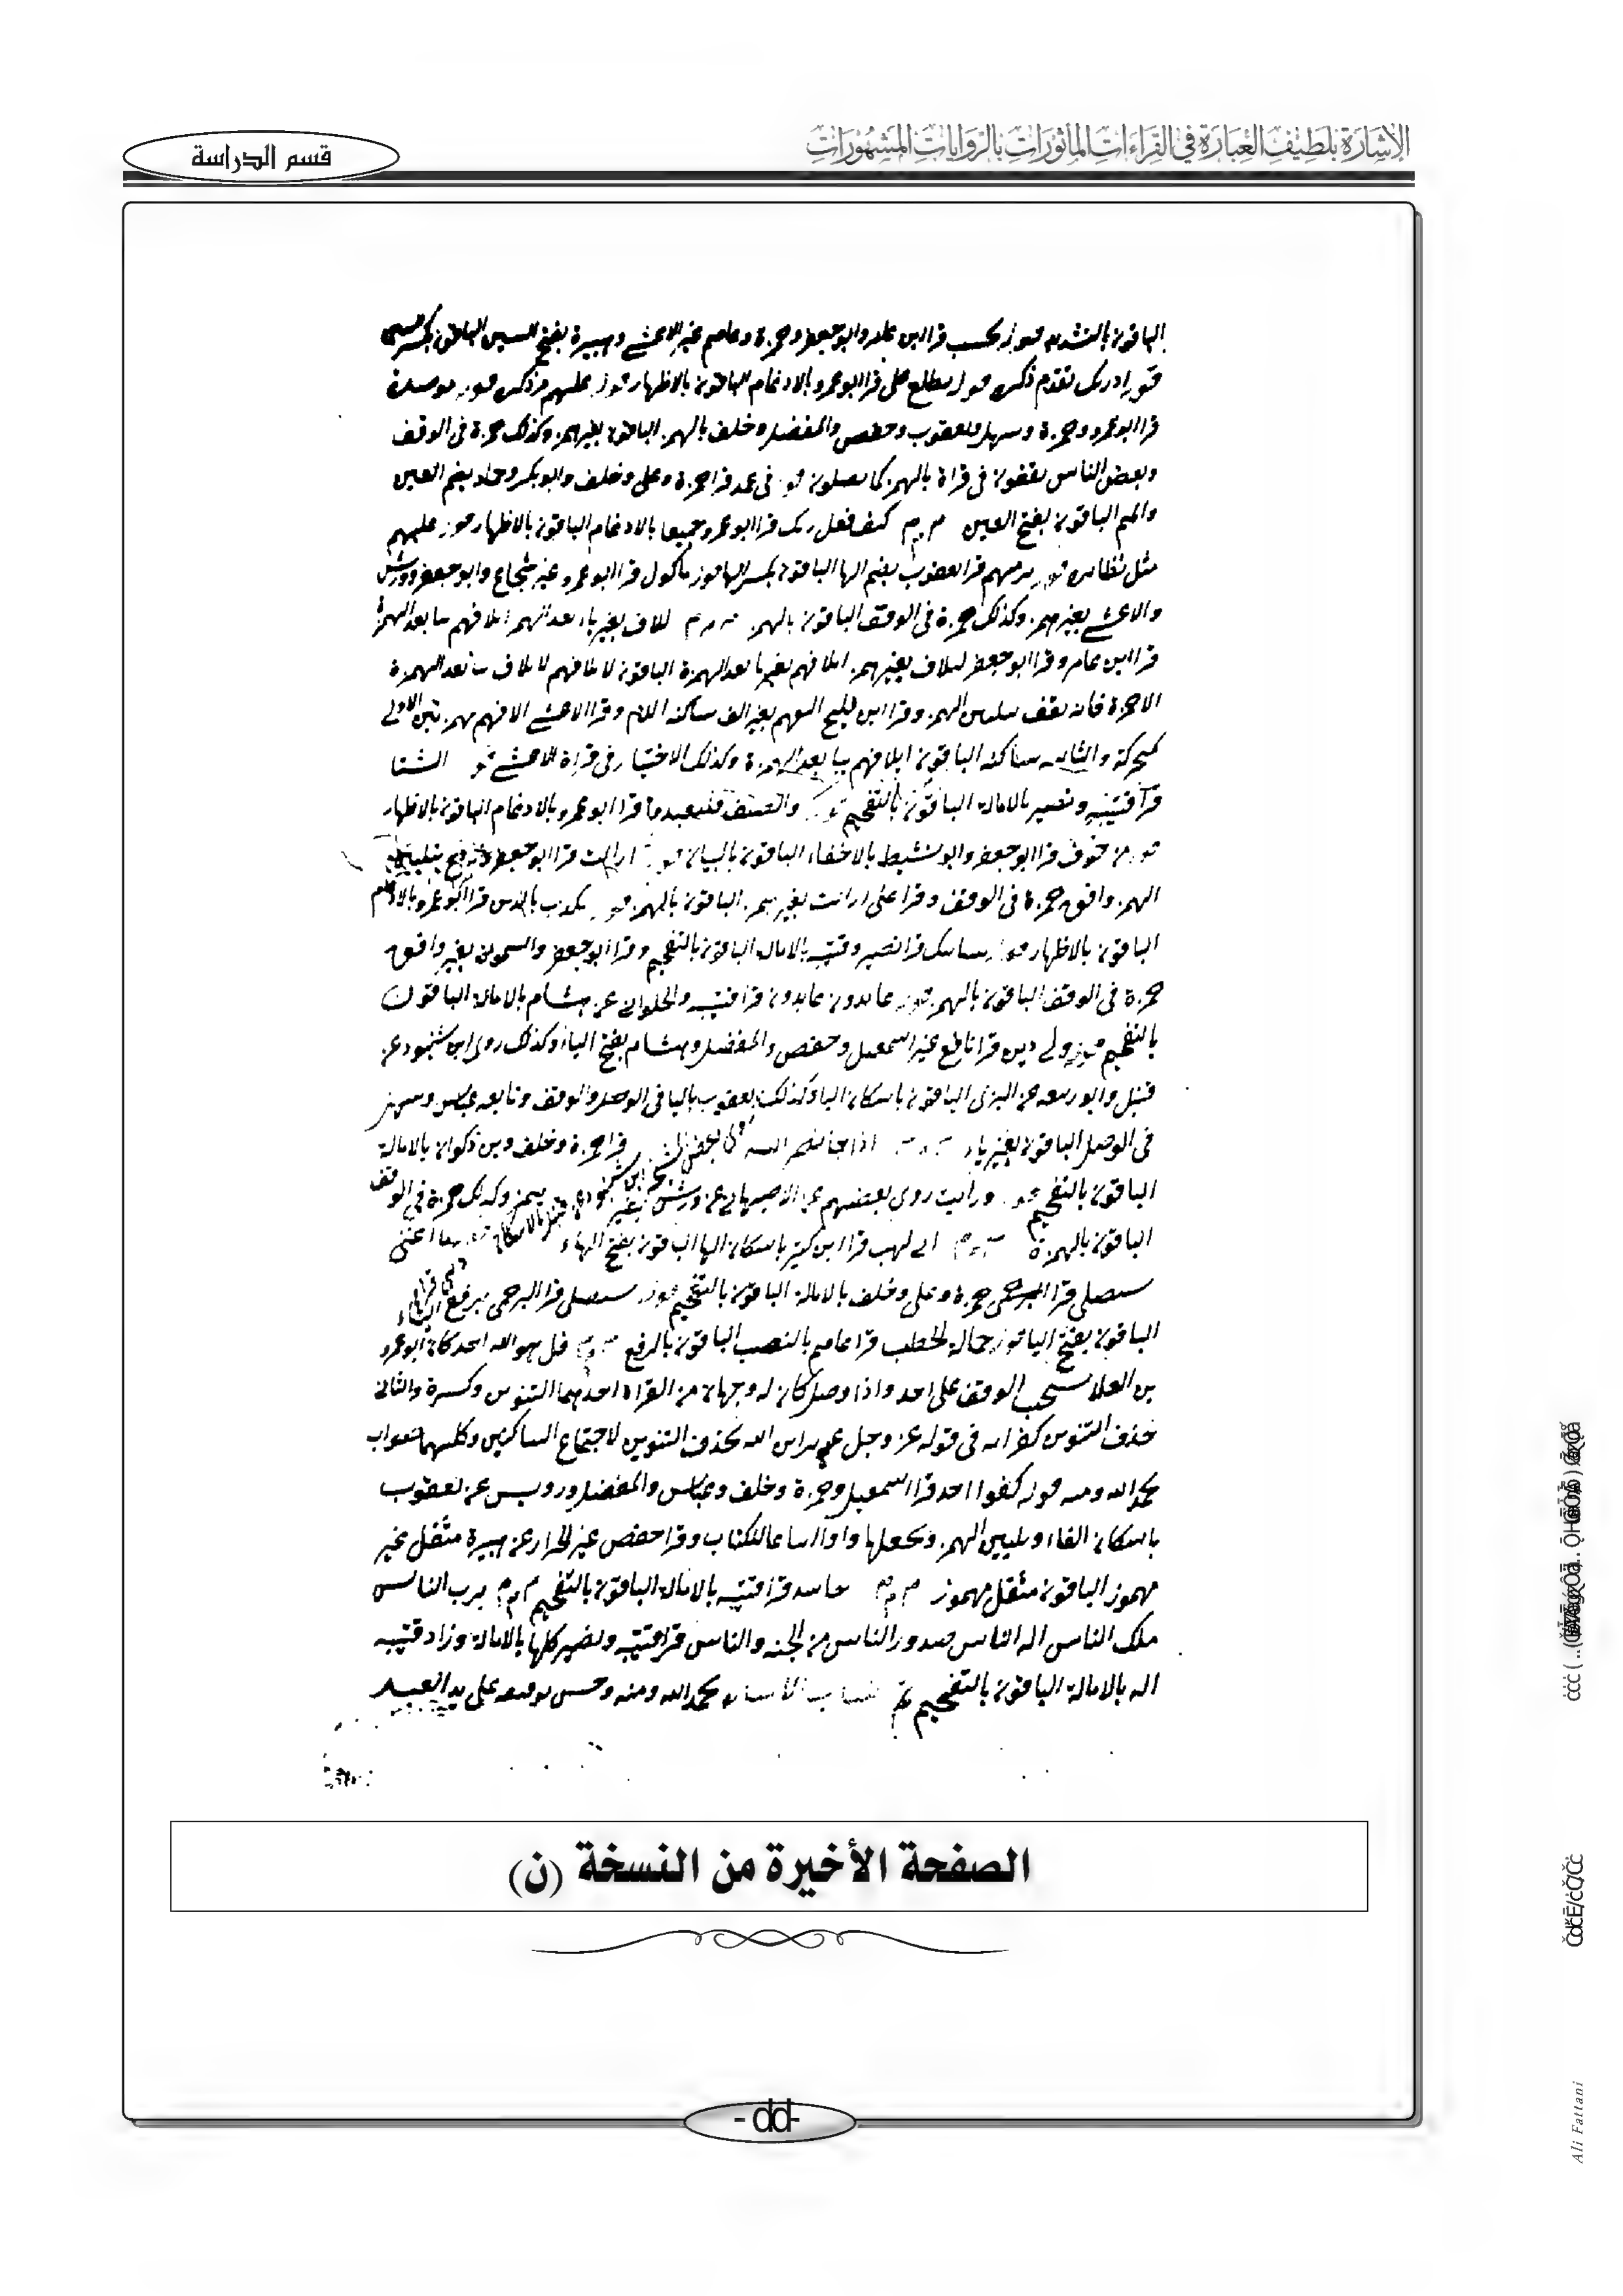 الإشارة بلطيف العبارة في القراءات المأثورات بالروايات المشهورات
قسم الدراسة
الباقون بالتشديد يحسب قرا ابن عامر وابو جعفر وحمزة وعاصم غير الاعشى وهبيرة بفتح السين الباقون بكسر السين
ادرىك تقدم ذكره تطلع على قرا ابو عمرو بالادغام الباقون بالاظهار عليهم مر ذكره موصدة
قرا ابو عمرو وحمزة وسهل ويعقوب وحفص والمفضل وخلف بالهمز الباقون بغير همز وكذلك حمزة في الوقف
وبعض الناس يقفون في قراة بالهمز كما يصلون في عمد قرا حمزة وعلى وخلف وابو بكر وحماد بضم العين
والميم الباقون بفتح العين كيف فعل ربك قرا ابو عمرو جميعا بالادغام الباقون بالاظهار عليهم
مثل نظايره ترميهم قرا يعقوب بضم الها الباقون بكسر الها ماكول قرا ابو عمرو غير شجاع وابو جعفر وورش
والاعشى بغير همز وكذلك حمزة في الوقف الباقون بالهمز لئلاف بغير ياء بعد الهمز ايلافهم بيا بعد الهمزة
قرا ابن عامر وقرا ابو جعفر ليلاف بغير همز الافهم بغير يا بعد الهمزة الباقون لايلافهم لايلاف بيا بعد الهمزة
الا حمزة فانه يقف بتليين الهمز وقرا ابن فليح الفهم بغير الف ساكنه اللام وقرا الاعشى الافهم بهمزتين الاولى
متحركة والثانيه ساكنه الباقون ايلافهم بيا بعد الهمزة وكذلك الاختيار في قراة الاعشى الشتا
قرا قتيبه ونصير بالامالة الباقون بالتفخيم والصيف فليعبدوا قرا ابو عمرو بالادغام الباقون بالاظهار
من خوف قرا ابو جعفر وابو نشيط بالاخفاء الباقون بالبيان ارايت قرا ابو جعفر ونافع بتليين
الهمز وافق حمزة في الوقف وقرا على ارايت بغير همز الباقون بالهمز يكذب بالدين قرا ابو عمرو بالادغام
الباقون بالاظهار قرا نصير وقتيبه بالامالة الباقون بالتفخيم وقرا ابو جعفر والشموني بغير وافق
حمزة في الوقف الباقون بالهمز عابدون عابدون قرا قتيبه والحلواني عن هشام بالامالة الباقون
بالتفخيم ولي دين قرا نافع غير اسمعيل وحفص والمفضل وهشام بفتح الياء وكذلك روى ابن شنبوذ عن
قنبل وابو ربيعه عن البزى الباقون باسكان اليا وكذلك يعقوب باليا في الوصل والوقف وتابعه عباس وسهل
في الوصل الباقون بغير ياء اذا جا نصر الله قرا حمزة وخلف وبن ذكوان بالامالة
الباقون بالتفخيم ورايت روى بعضهم عن الاصبهاني عن ورش بغير همز وكذلك حمزة في الوقف
الباقون بالهمزة ابي لهب قرا ابن كثير باسكان الها الباقون بفتح الهاء ما اغنى
سيصلى قرا حمزة وعلى وخلف بالامالة الباقون بالتفخيم سيصلى قرا البرجمى برفع الياء
الباقون بفتح اليا حمالة الحطب قرا عاصم بالنصب الباقون بالرفع قل هو الله احد كان ابو عمرو
بن العلا يستحب الوقف على احد واذا وصل كان له وجهان من القراة احدهما التنوين وكسره والثاني
حذف التنوين كقراته في قوله عز وجل عزير ابن الله بحذف التنوين لاجتماع الساكنين وكليهما صواب
بحمد الله ومنه كفوا احد قرا اسمعيل وحمزة وخلف وعباس والمفضل ورويس عن يعقوب
باسكان الفاء وتليين الهمز وبجعلها واوا اتباعا للكتاب وقرا حفص غير الخراز عن هبيرة مثقل غير
مهموز الباقون مثقل مهموز حاسد قرا قتيبه بالامالة الباقون بالتفخيم برب الناس
ملك الناس اله الناس صدور الناس من الجنه والناس قرا قتيبه ونصير كلها بالامالة وزاد قتيبه
اله بالامالة الباقون بالتفخيم تم بحمد الله ومنه وحسن توفيقه على يد العبد
الصفحة الأخيرة من النسخة (ن)
- dd-
Ali Fattani